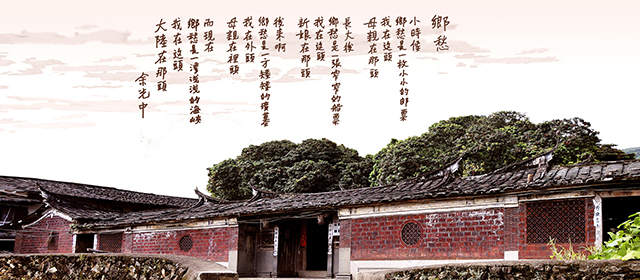 鄉愁
小時候
鄉愁是一枚小小的郵票
我在這頭
母親在那頭
長大後
鄉愁是一張窄窄的船票
我在這頭
新娘在那頭
後來啊
鄉愁是一方矮矮的墳墓
我在外頭
母親在裡頭
而現在
鄉愁是一灣淺淺的海峽
我在這頭
大陸在那頭
余光中